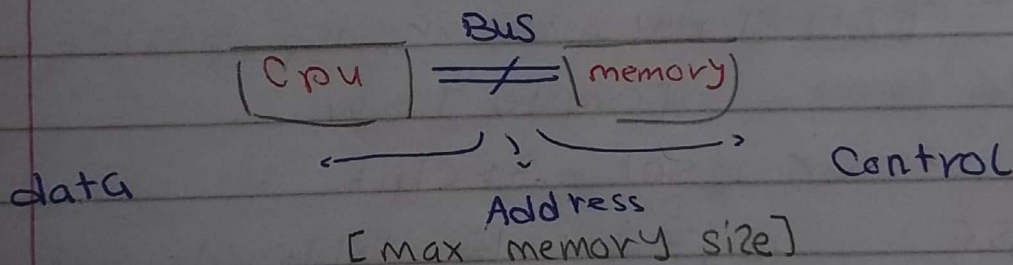 BUS
Cpu memory
data Control
Address
[max memory size]